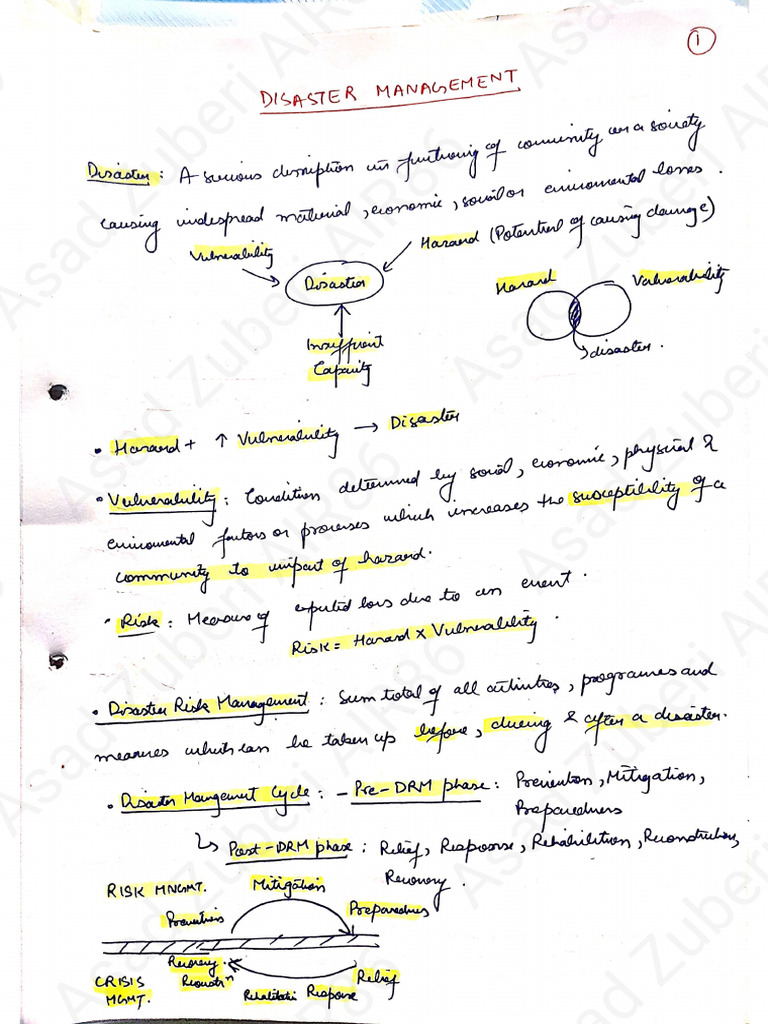 1
DISASTER MANAGEMENT
Disaster : A serious disruption in functioning of community or a society
causing widespread material, economic, social or enviromental losses.
Vulnerability
Hazard (Potential of causing damage)
Disaster
Hazard Vulnerability
Insufficient
Capacity
disaster.
• Hazard + ↑ Vulnerability → Disaster
• Vulnerability : Condition determined by social, economic, physical &
enviromental factors or processes which increases the susceptibility of a
community to impact of hazard.
• Risk : Measure of expected loss due to an event.
Risk = Hazard × Vulnerability.
• Disaster Risk Management : Sum total of all activities, programmes and
measures which can be taken up before, during & after a disaster.
• Disaster Mangement Cycle : - Pre-DRM phase : Prevention, Mitigation,
Preparedness
↳ Post-DRM phase : Relief, Response, Rehabilition, Reconstruction,
Recovery.
RISK MNGMT. Mitigation
Prevention Preparedness
Recovery.
CRISIS Reconstrⁿ Relief
MGMT. Rehabilitation Response
Asad Zuberi AIR86